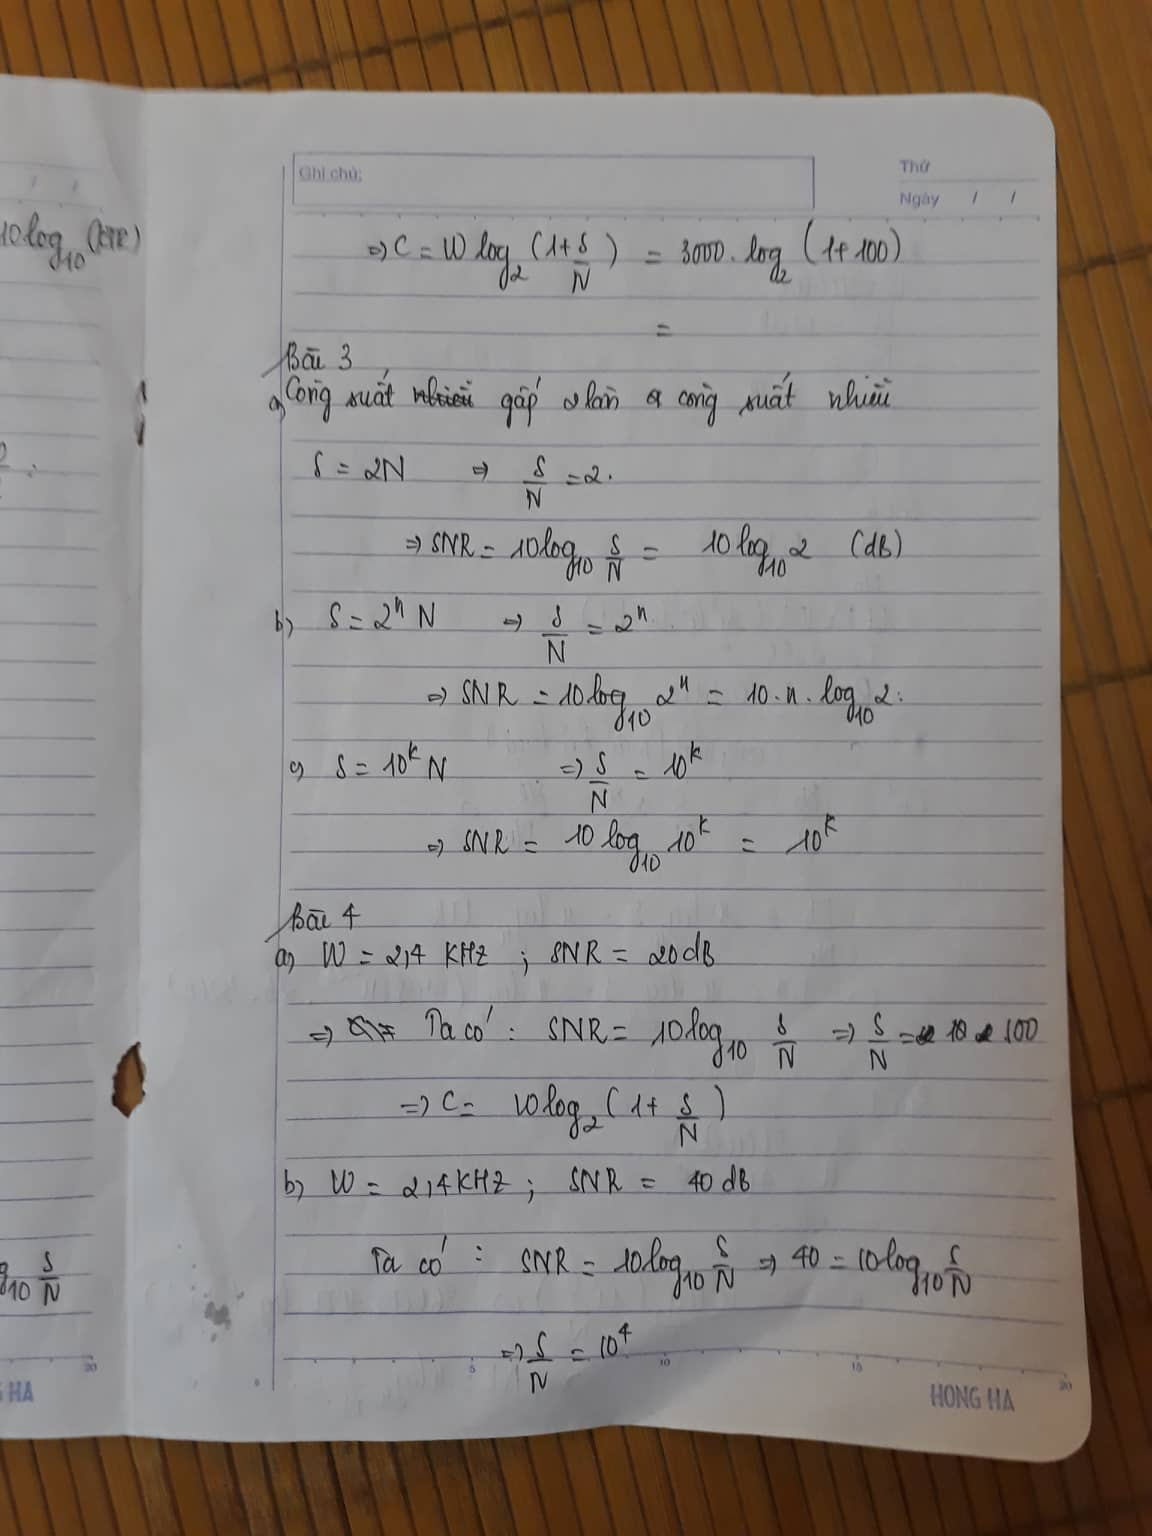 10log₁₀(KTR)
g₁₀ S/N
Ghi chú:
Thứ
Ngày / /
⇒ C = W log₂ (1+ S/N) = 3000. log₂ (1+ 100)
=
Bài 3
a) Công suất nhiễu gấp 2 lần công suất nhiễu
S = 2N ⇒ S/N = 2.
⇒ SNR = 10log₁₀ S/N = 10 log₁₀ 2 (dB)
b) S = 2ⁿ N ⇒ S/N = 2ⁿ
⇒ SNR = 10 log₁₀ 2ⁿ = 10. n. log₁₀ 2.
c) S = 10ᵏ N ⇒ S/N = 10ᵏ
⇒ SNR = 10 log₁₀ 10ᵏ = 10ᵏ
Bài 4
a) W = 2,4 KHZ ; SNR = 20 dB
⇒ Ta có : SNR = 10log₁₀ S/N ⇒ S/N = 100
⇒ C = W log₂ (1+ S/N)
b) W = 2,4 KHZ ; SNR = 40 dB
Ta có : SNR = 10log₁₀ S/N ⇒ 40 = 10log₁₀ S/N
⇒ S/N = 10⁴
5 10 15 20
HONG HA
20
G HA